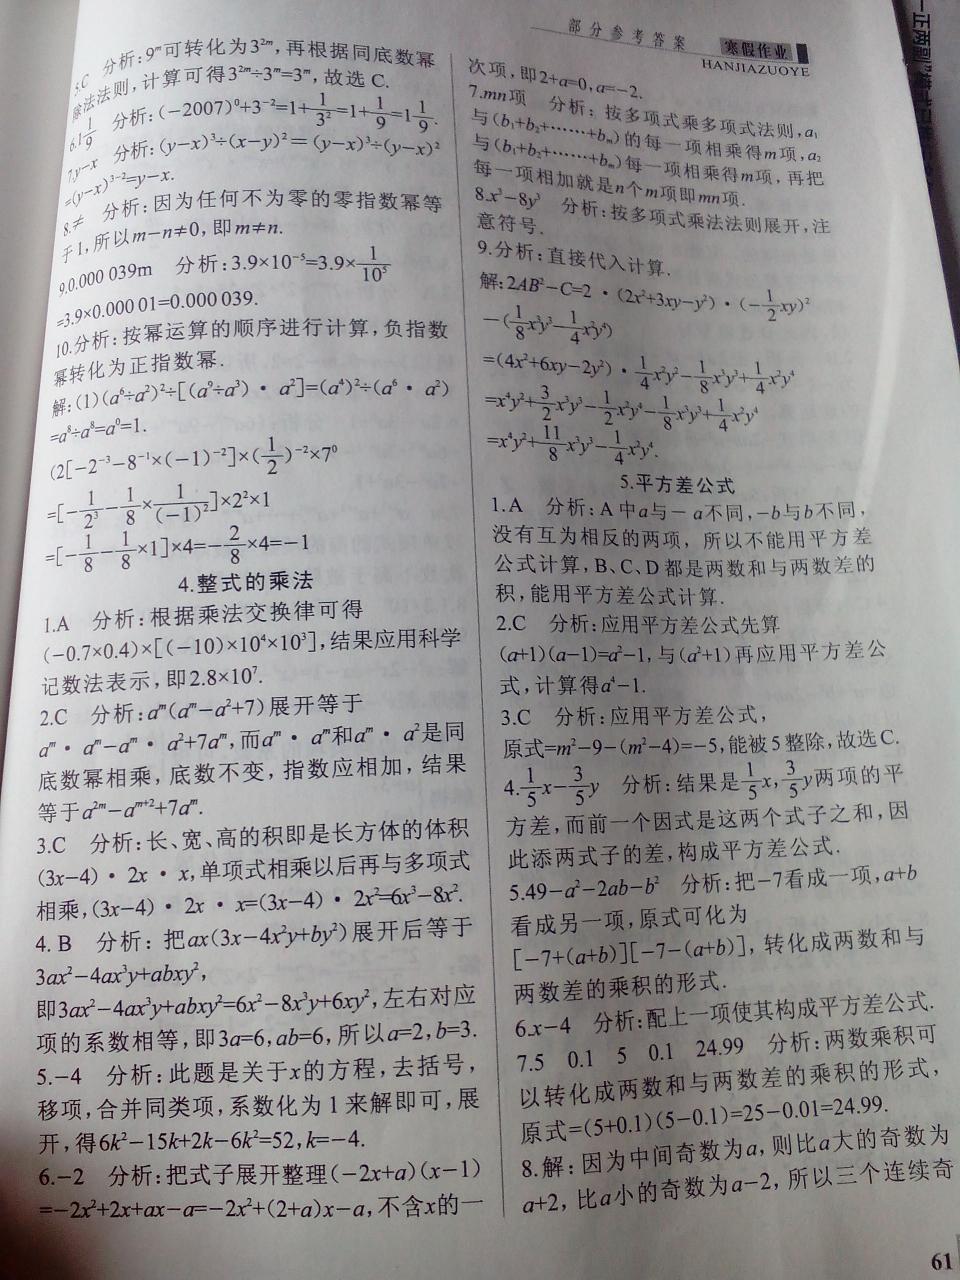 部分参考答案 寒假作业
HANJIAZUOYE
5.C 分析:9ᵐ可转化为3²ᵐ,再根据同底数幂
除法法则,计算可得3²ᵐ÷3ᵐ=3ᵐ,故选 C.
6.1 1/9 分析:(−2007)⁰+3⁻²=1+1/3²=1+1/9=1 1/9.
7.y−x 分析:(y−x)³÷(x−y)²=(y−x)³÷(y−x)²
=(y−x)³⁻²=y−x.
8.≠ 分析:因为任何不为零的零指数幂等
于1,所以m−n≠0,即m≠n.
9.0.000 039m 分析:3.9×10⁻⁵=3.9×1/10⁵
=3.9×0.000 01=0.000 039.
10.分析:按幂运算的顺序进行计算,负指数
幂转化为正指数幂.
解:(1)(a⁶÷a²)²÷[(a⁹÷a³)·a²]=(a⁴)²÷(a⁶·a²)
=a⁸÷a⁸=a⁰=1.
(2[−2⁻³−8⁻¹×(−1)⁻²]×(1/2)⁻²×7⁰
=[−1/2³−1/8×1/(−1)²]×2²×1
=[−1/8−1/8×1]×4=−2/8×4=−1
4.整式的乘法
1.A 分析:根据乘法交换律可得
(−0.7×0.4)×[(−10)×10⁴×10³],结果应用科学
记数法表示,即2.8×10⁷.
2.C 分析:aᵐ(aᵐ−a²+7)展开等于
aᵐ·aᵐ−aᵐ·a²+7aᵐ,而aᵐ·aᵐ和aᵐ·a²是同
底数幂相乘,底数不变,指数应相加,结果
等于a²ᵐ−aᵐ⁺²+7aᵐ.
3.C 分析:长、宽、高的积即是长方体的体积
(3x−4)·2x·x,单项式相乘以后再与多项式
相乘,(3x−4)·2x·x=(3x−4)·2x²=6x³−8x².
4. B 分析:把ax(3x−4x²y+by²)展开后等于
3ax²−4ax³y+abxy²,
即3ax²−4ax³y+abxy²=6x²−8x³y+6xy²,左右对应
项的系数相等,即3a=6,ab=6,所以a=2,b=3.
5.−4 分析:此题是关于x的方程,去括号,
移项,合并同类项,系数化为1来解即可,展
开,得6k²−15k+2k−6k²=52,k=−4.
6.−2 分析:把式子展开整理(−2x+a)(x−1)
=−2x²+2x+ax−a=−2x²+(2+a)x−a,不含x的一
次项,即2+a=0,a=−2.
7.mn项 分析:按多项式乘多项式法则,a₁
与(b₁+b₂+……+bₘ)的每一项相乘得m项,a₂
与(b₁+b₂+……+bₘ)每一项相乘得m项,再把
每一项相加就是n个m项即mn项.
8.x³−8y³ 分析:按多项式乘法法则展开,注
意符号.
9.分析:直接代入计算.
解:2AB²−C=2·(2x²+3xy−y²)·(−1/2xy)²
−(1/8x³y³−1/4x²y⁴)
=(4x²+6xy−2y²)·1/4x²y²−1/8x³y³+1/4x²y⁴
=x⁴y²+3/2x³y³−1/2x²y⁴−1/8x³y³+1/4x²y⁴
=x⁴y²+11/8x³y³−1/4x²y⁴.
5.平方差公式
1.A 分析:A中a与−a不同,−b与b不同,
没有互为相反的两项,所以不能用平方差
公式计算,B、C、D都是两数和与两数差的
积,能用平方差公式计算.
2.C 分析:应用平方差公式先算
(a+1)(a−1)=a²−1,与(a²+1)再应用平方差公
式,计算得a⁴−1.
3.C 分析:应用平方差公式,
原式=m²−9−(m²−4)=−5,能被5整除,故选C.
4.1/5x−3/5y 分析:结果是1/5x,3/5y两项的平
方差,而前一个因式是这两个式子之和,因
此添两式子的差,构成平方差公式.
5.49−a²−2ab−b² 分析:把−7看成一项,a+b
看成另一项,原式可化为
[−7+(a+b)][−7−(a+b)],转化成两数和与
两数差的乘积的形式.
6.x−4 分析:配上一项使其构成平方差公式.
7.5 0.1 5 0.1 24.99 分析:两数乘积可
以转化成两数和与两数差的乘积的形式,
原式=(5+0.1)(5−0.1)=25−0.01=24.99.
8.解:因为中间奇数为a,则比a大的奇数为
a+2,比a小的奇数为a−2,所以三个连续奇
61